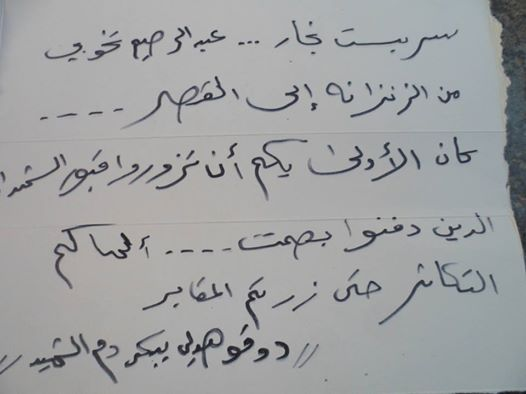 سربست نجار ... عبد الرحيم تخوبي
من الزنزانة إلى القصر ----
كان الأولى بكم أن تزوروا قبور الشهداء
الذين دفنوا بصمت ---- ألهاكم
التكاثر حتى زرتم المقابر
// دوفو هولي بيكر دم الشهيد //